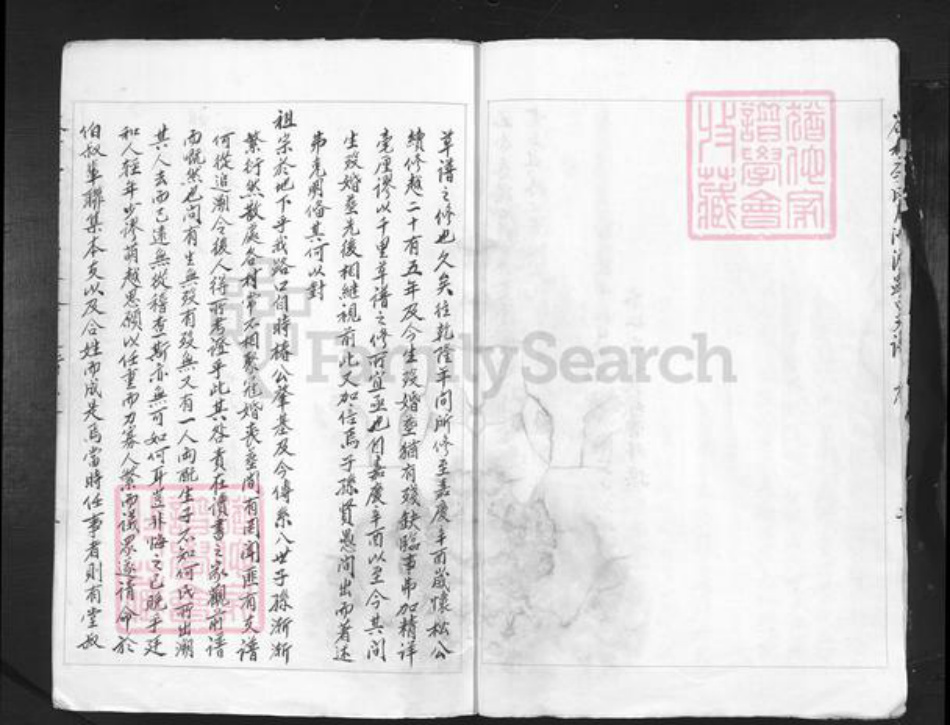 草譜之修也久矣往乾隆年間所修至嘉慶辛酉歲懷松公
續修越二十有五年及今生殁婚塟猶有殘缺臨事弗加精詳
毫厘謬以千里草譜之修所宜亟也自嘉慶辛酉以至今其間
生殁婚塟先後相継視前此又加倍焉子孫賢愚間出而著述
弗克明備其何以對
祖宗於地下乎我路口自時椿公肇基及今傳系八世子孫漸漸
繁衍然散處各村常不相聚冠婚喪塟間有罔聞匪有支譜
何從追溯令後人得所考證乎此其咎責在讀書之家觀前譜
而慨然也间有生無殁有殁無又有一人両配生子不知何氏所出溯
其人去而已遠無從稽查斯亦無可如何耳豈非悔之已晚乎廷
和人輕年少謬萌越思願以任重而力寡人繁而議眾遂請命於
伯叔輩聯集本支以及合姓而成是焉當時任事者則有堂叔
猶他家
譜學會
收藏
FamilySearch